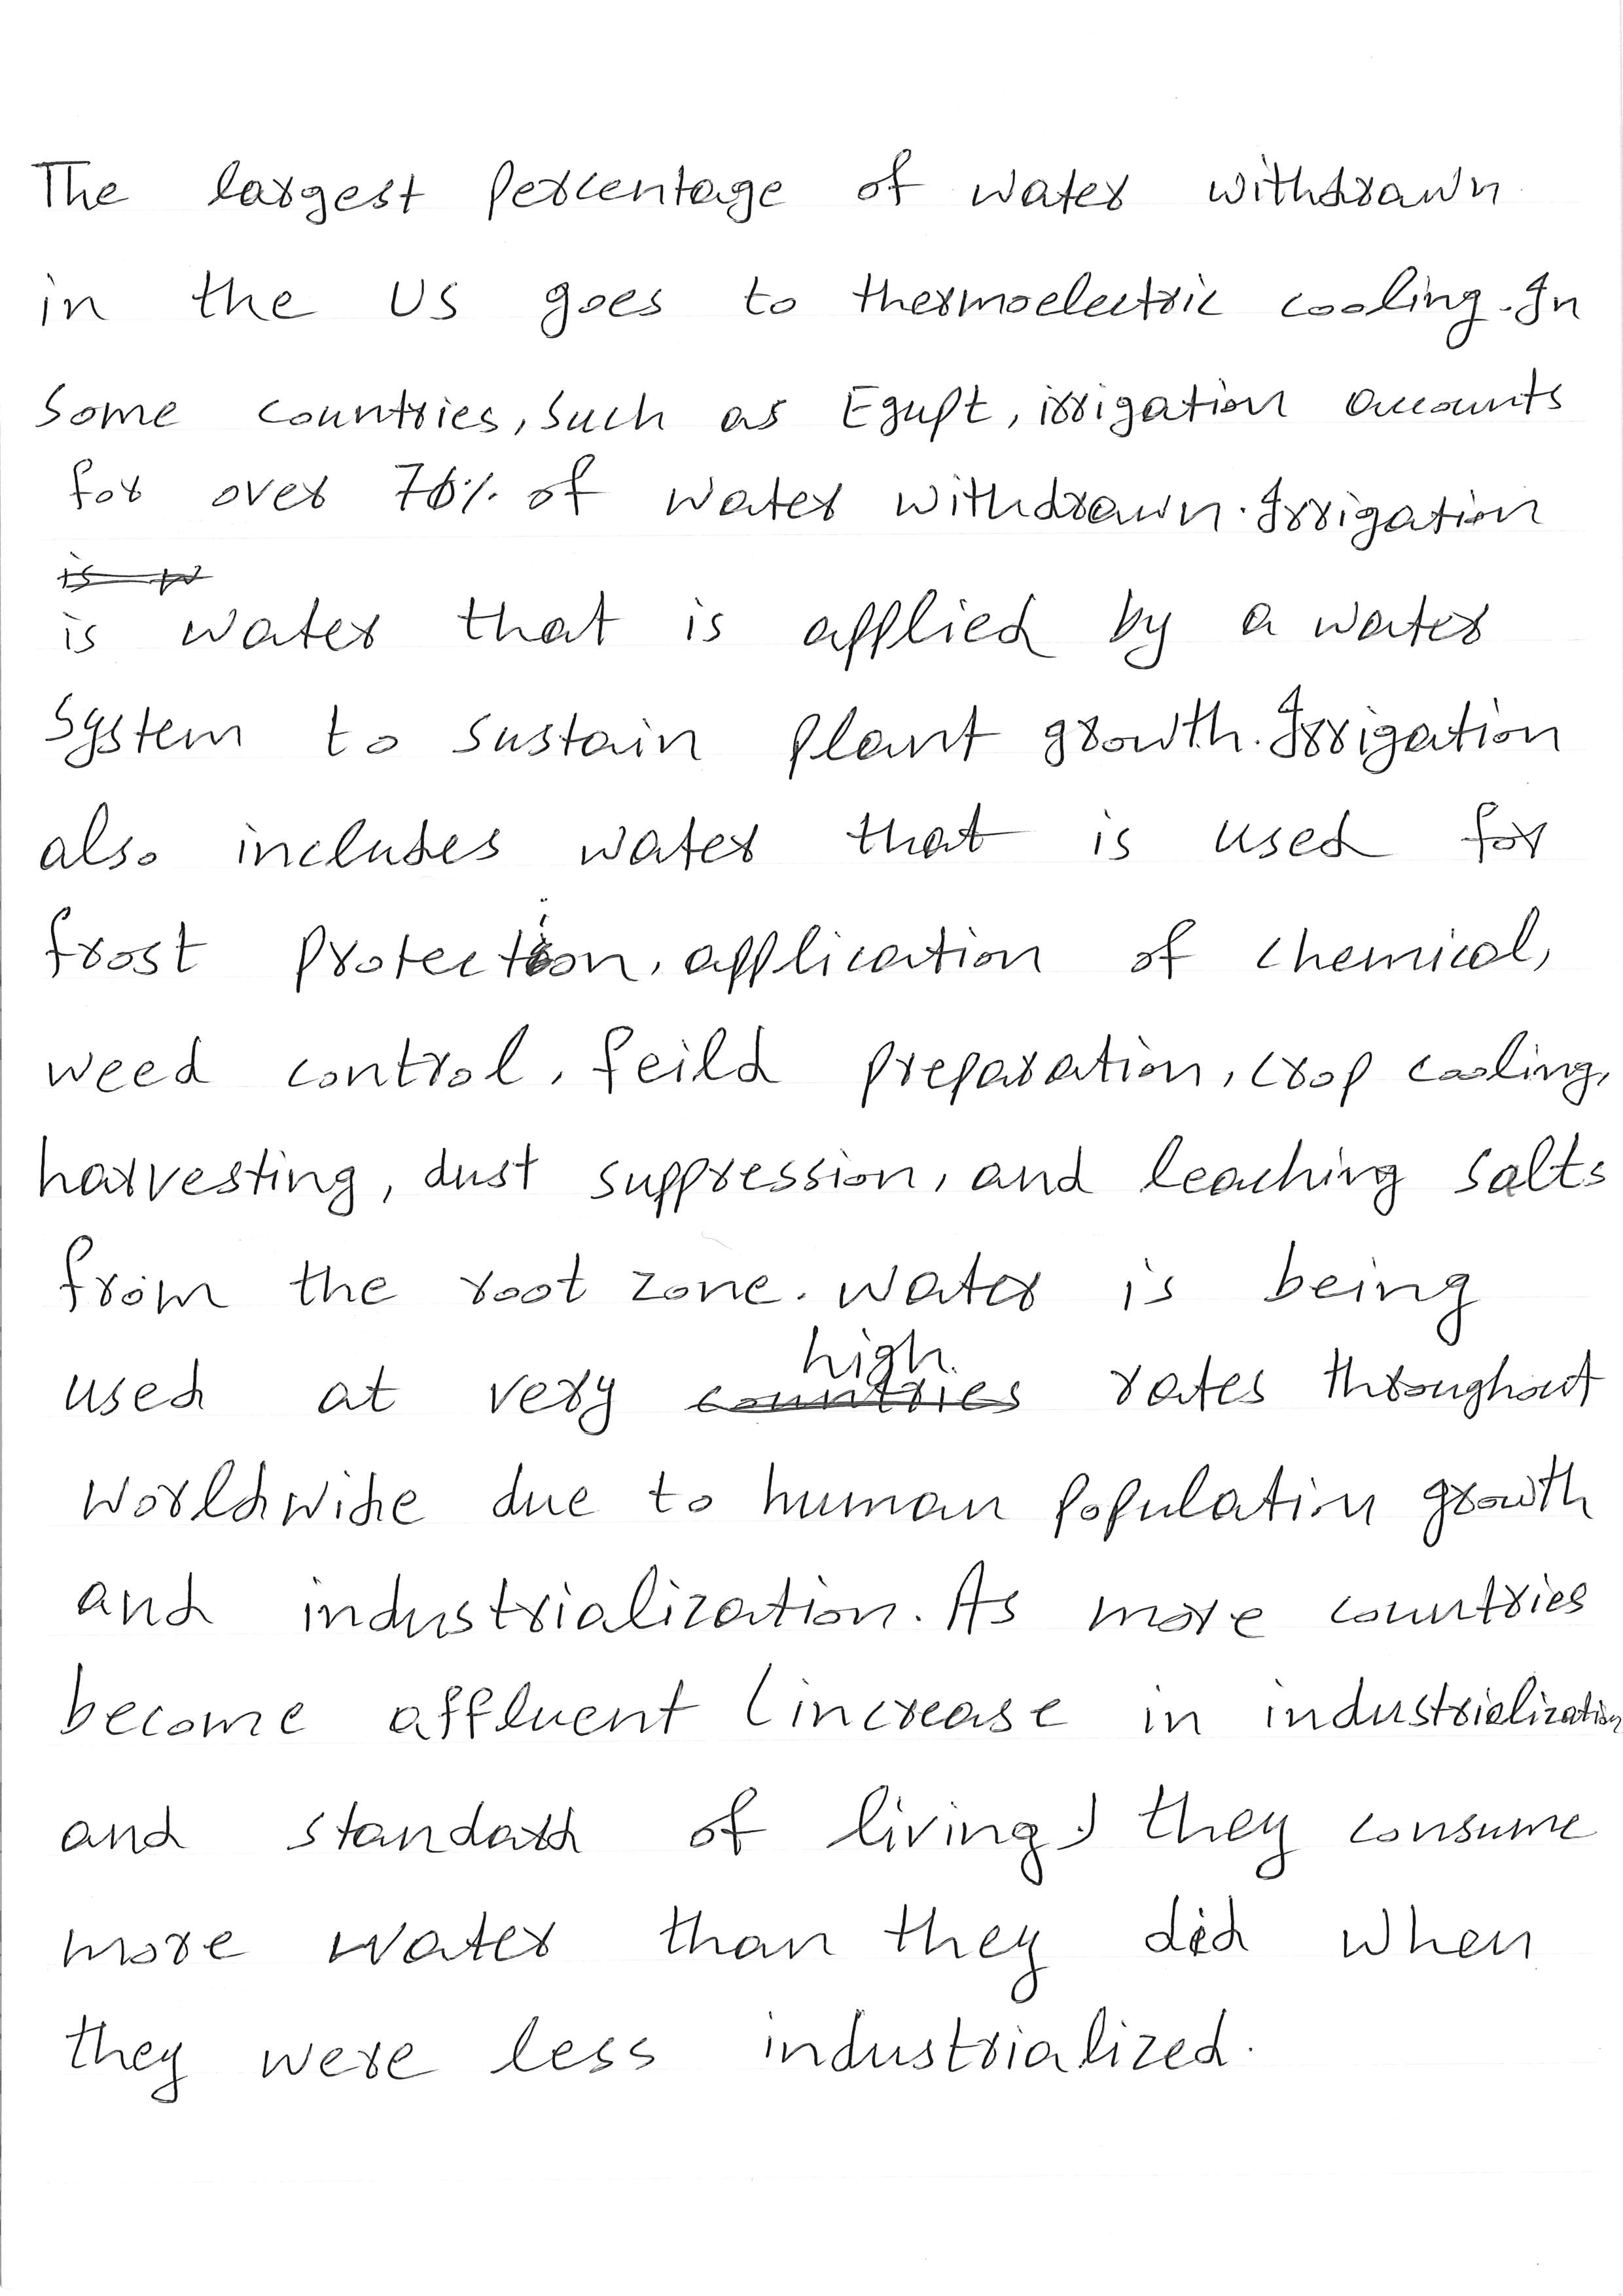 The largest percentage of water withdrawn
in the US goes to thermoelectric cooling. In
some countries, such as Egupt, irrigation accounts
for over 70% of water withdrawn. Irrigation
is water that is applied by a water
system to sustain plant growth. Irrigation
also includes water that is used for
frost protection, application of chemical,
weed control, feild preparation, crop cooling,
harvesting, dust suppression, and leaching salts
from the root zone. Water is being
used at very high rates throughout
worldwide due to human population growth
and industrialization. As more countries
become affluent (increase in industrialization
and standard of living) they consume
more water than they did when
they were less industrialized.